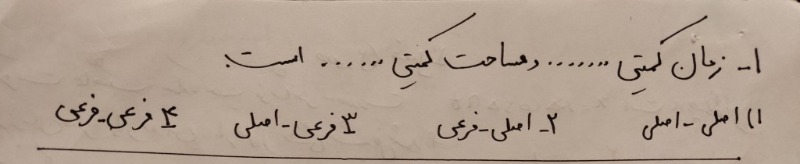 ۱- زمان کمیتی ....... و مساحت کمیتی ...... است.
۱) اصلی - اصلی ۲- اصلی - فرعی ۳ فرعی - اصلی ۴ فرعی - فرعی